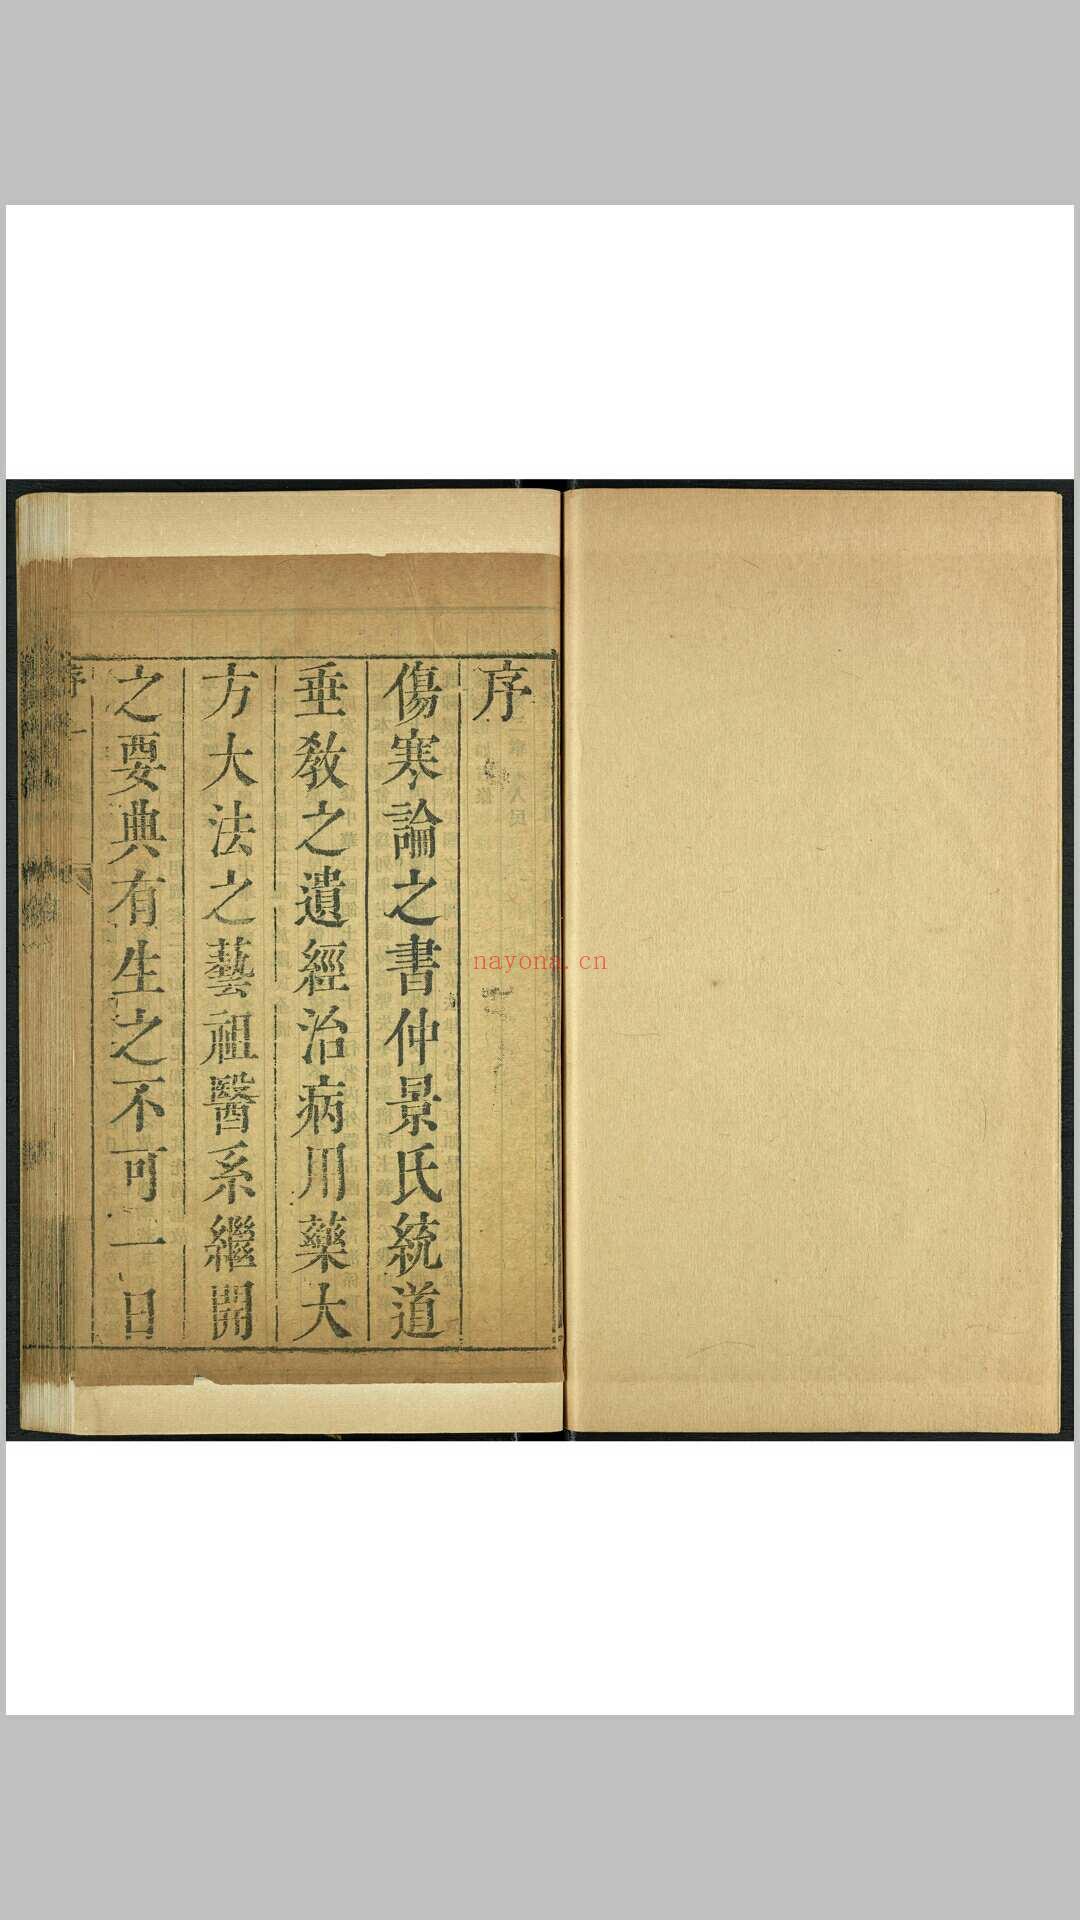 序
傷寒論之書仲景氏統道
垂教之遺經治病用藥大
方大法之藝祖醫系繼開
之要典有生之不可一日
序 一
nayona.cn